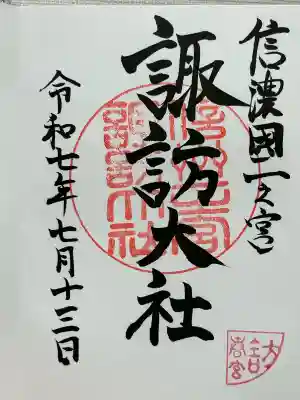 信濃國一之宮
諏訪大社
令和七年七月十三日